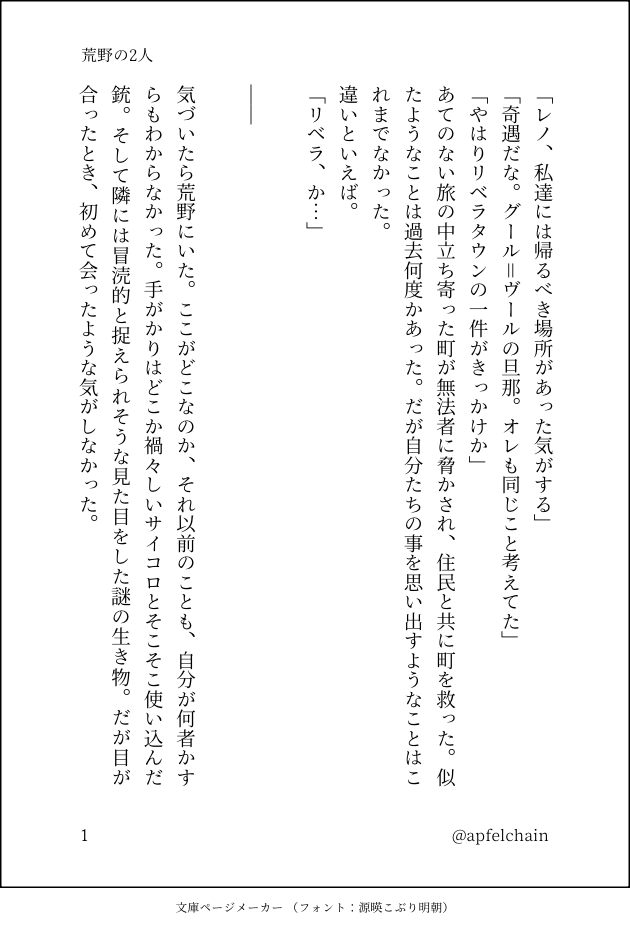 荒野の2人
「レノ、私達には帰るべき場所があった気がする」
「奇遇だな。グール＝ヴールの旦那。オレも同じこと考えてた」
「やはりリベラタウンの一件がきっかけか」
あてのない旅の中立ち寄った町が無法者に脅かされ、住民と共に町を救った。似
たようなことは過去何度かあった。だが自分たちの事を思い出すようなことはこ
れまでなかった。
違いといえば。
「リベラ、か…」
――
気づいたら荒野にいた。ここがどこなのか、それ以前のことも、自分が何者かす
らもわからなかった。手がかりはどこか禍々しいサイコロとそこそこ使い込んだ
銃。そして隣には冒涜的と捉えられそうな見た目をした謎の生き物。だが目が
合ったとき、初めて会ったような気がしなかった。
1
@apfelchain
文庫ページメーカー （フォント：源暎こぶり明朝）